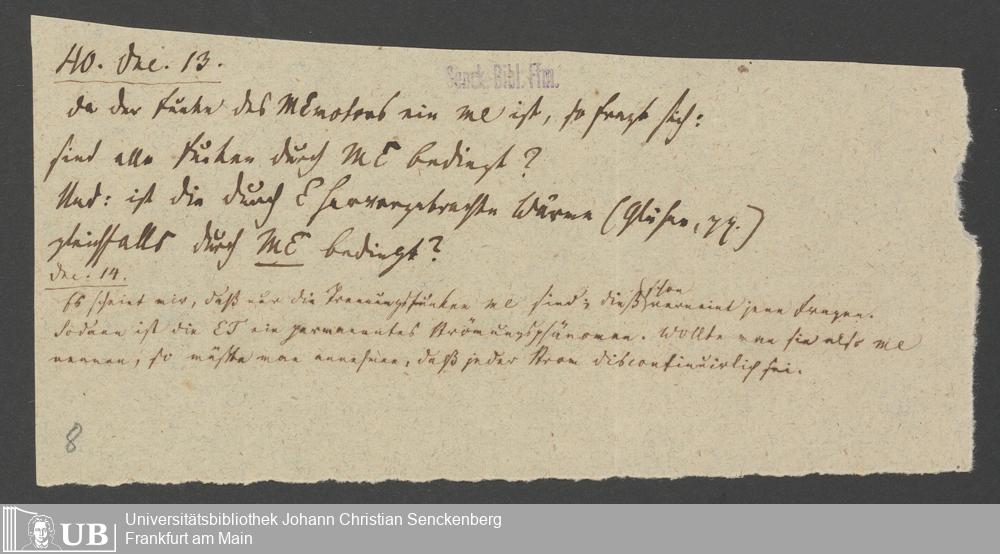 40. Dec. 13.
Senck. Bibl. Ffm.
Da der Funke des MEmotors ein me ist, so fragt sich:
sind alle Funken durch ME bedingt?
Und: ist die durch E hervorgebrachte Wärme (Glühen, pp.)
gleichfalls durch ME bedingt?
Dec. 14.
Es scheint mir, daß nur die Trennungsfunken me sind; dieß schon verneint jene Fragen.
Sodann ist die ET ein permanentes Strömungsphänomen. Wollte man sie also me
nennen, so müßte man annehmen, daß jeder Strom discontinuirlich sei.
8
UB
Universitätsbibliothek Johann Christian Senckenberg
Frankfurt am Main